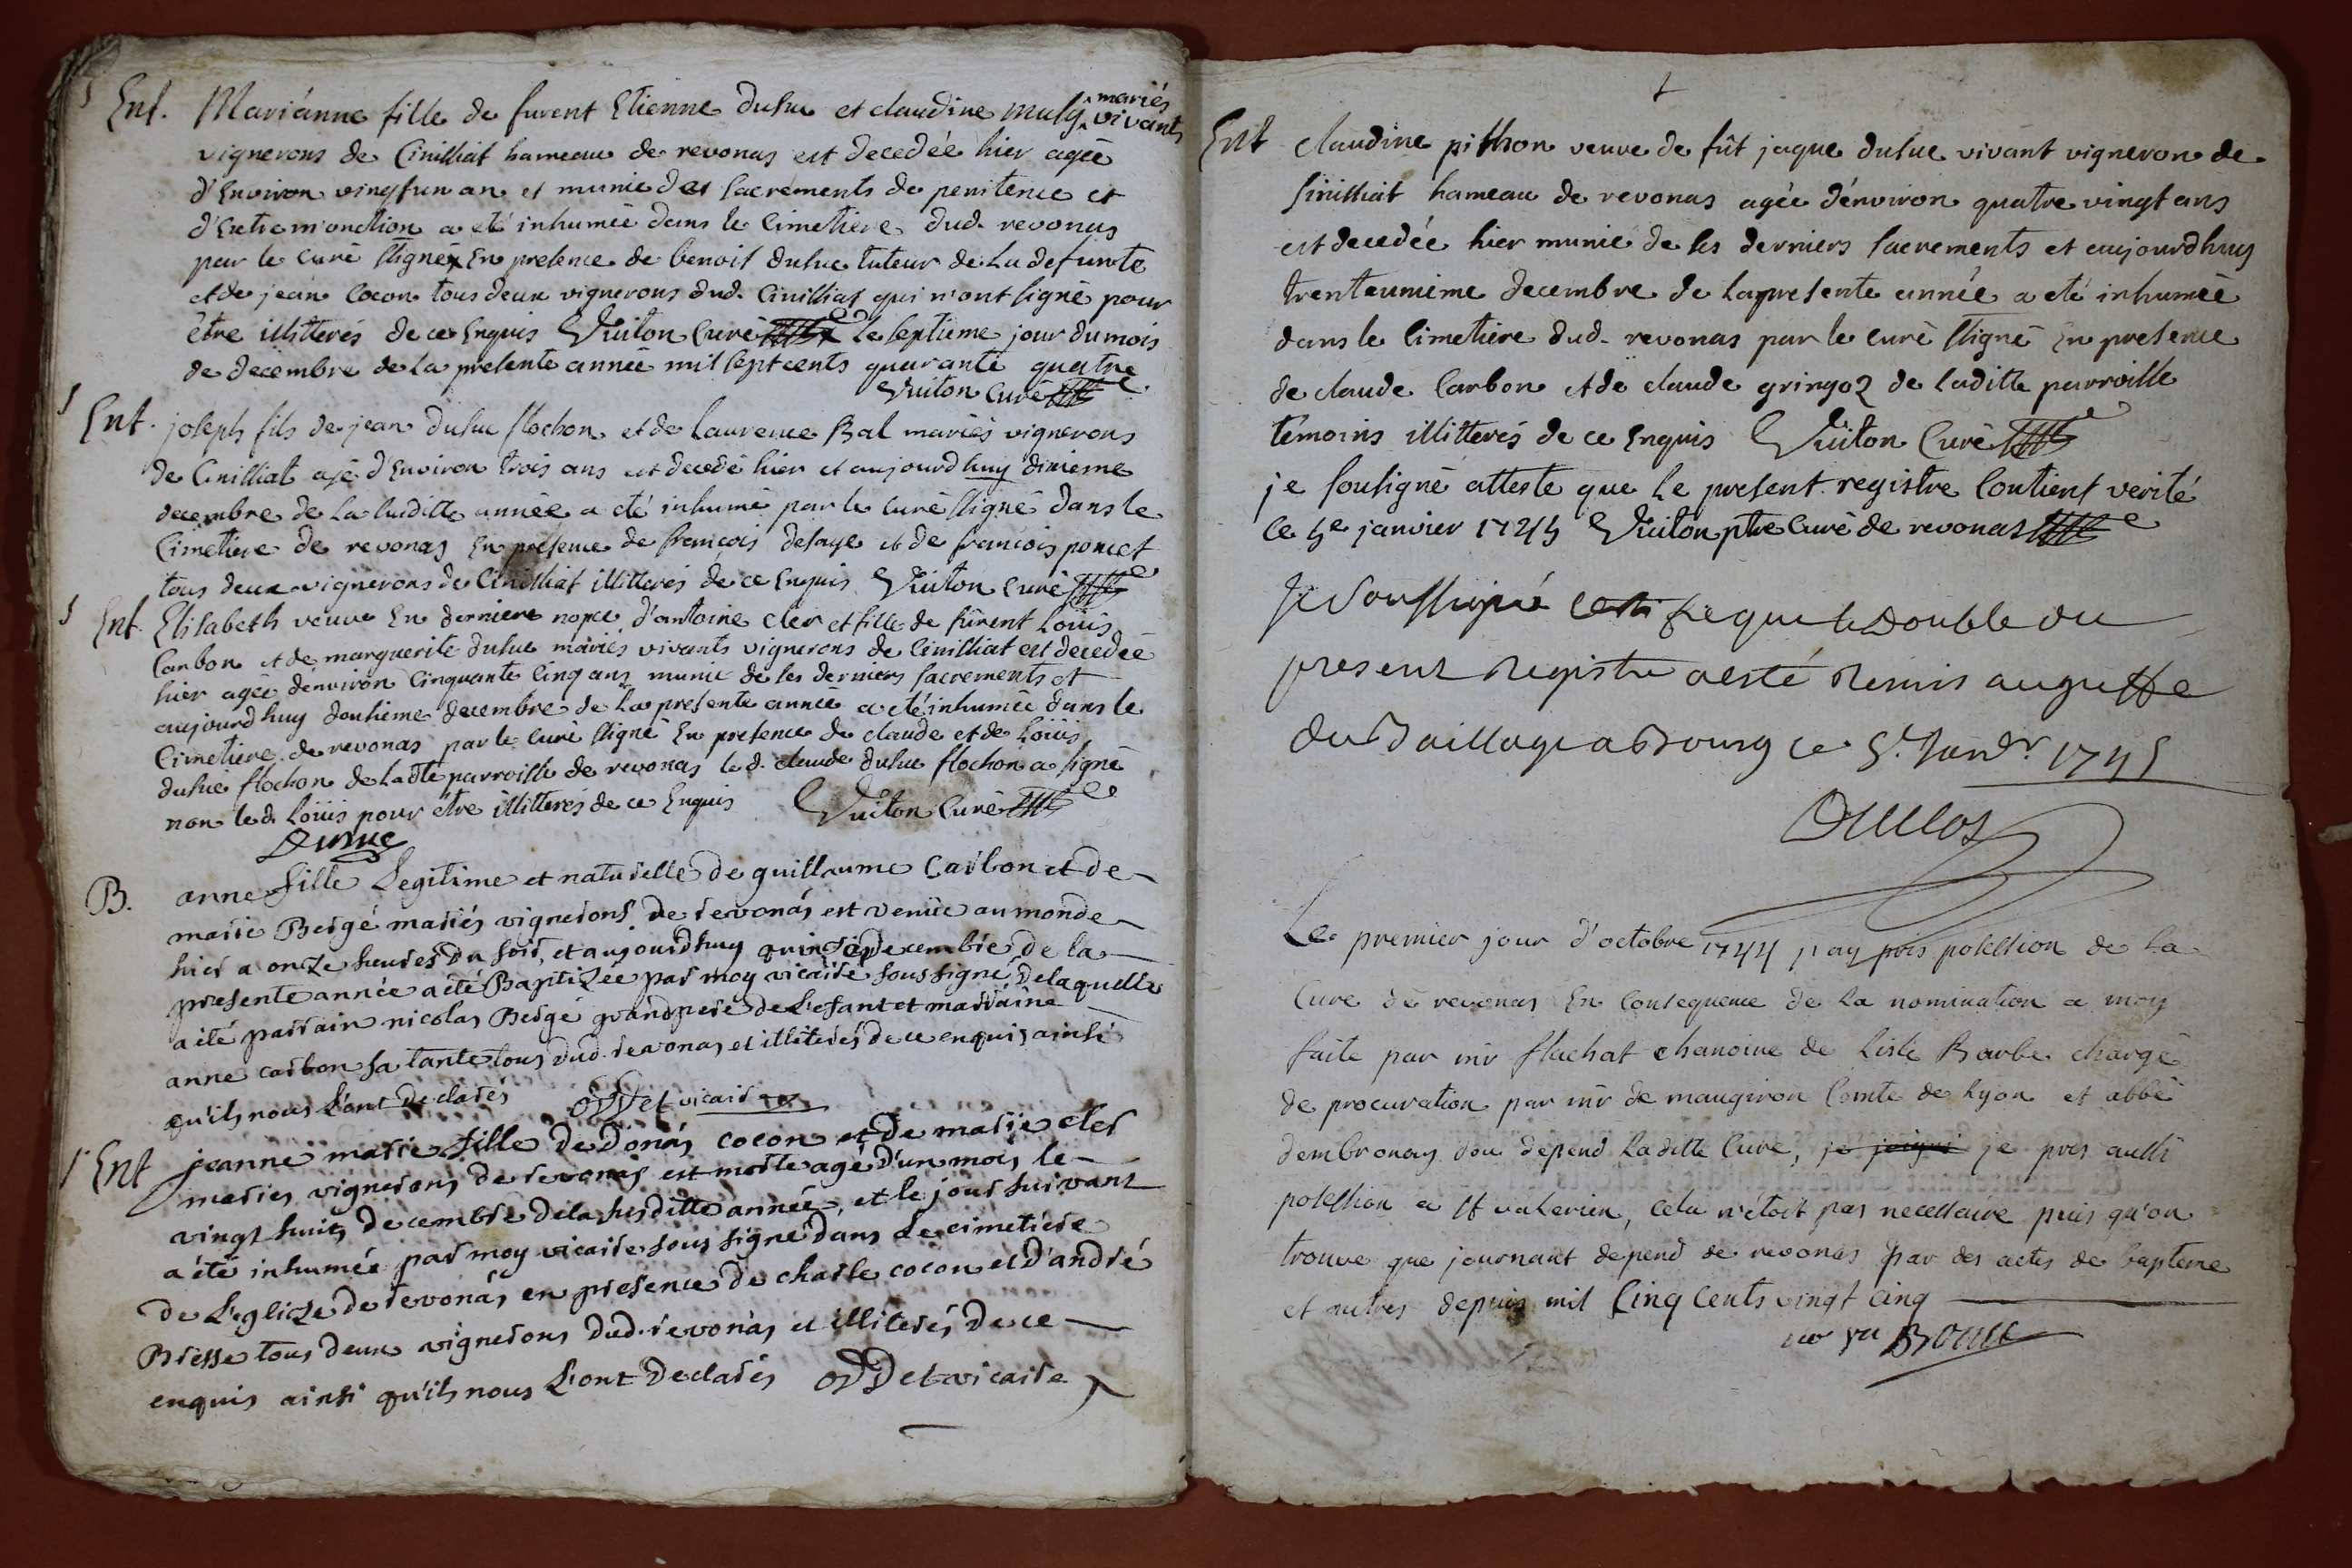 Ent. Marianne fille de furent Etienne dusuc et claudine Muly ^ mariés vivants
vignerons de CiniSSiat hameau de revonas est decedée hier agée
d'Environ vingt un an et munie des sacrements de penitence et
d'Extremonction a eté inhumée dans le Cimetiere dud. revonas
par le Curé ssigné x En presence de benoit dusuc tuteur de La defunte
et de jean Cocon tous deux vignerons dud. Cinissiat qui n'ont signé pour
être illiterés de ce Enquis Vuiton Curé x Le septieme jour du mois
de decembre de La presente année mil sept cents quarante quatre
Vuiton Curé
Ent. joseph fils de jean dusuc flochon et de Laurence Bal mariés vignerons
de Cinissiat agé d'Environ trois ans est decedé hier et aujourdhuy dixieme
decembre de La susditte année a eté inhumé par le Curé ssigné dans le
Cimetiere de revonas En presence de francois defaye et de francois poncet
tous deux vignerons de Cinissiat illiterés de ce Enquis Vuiton Curé
Ent. Elisabeth veuve En derniere nopce d'antoine cler et fille de fürent Loüis
Carbon et de marguerite dusuc mariés vivants vignerons de Cinissiat est decedée
hier agée d'environ Cinquante Cinq ans munie de ses derniers sacrements et
aujourdhuy douzieme decembre de La presente année a eté inhumée dans le
Cimetiere de revonas par le Curé ssigné En presence de claude et de Loüis
dusuc flochon de Ladte parroisse de revonas le d. claude dusuc flochon a signé
non led. Loüis pour être illitterés de ce Enquis Vuiton Curé
Dusuc
B. anne fille Legitime et naturelle de guillaume Carbon et de
marie Bergé mariés vignerons de revonás est venüe au monde
hier a onze heures du soir, et aujourdhuy quinze decembre de la
presente année a eté Baptizée par moy vicaire soussigné, de laquelle
a été parrain nicolas Bergé grandpere de L'efant et marraine
anne carbon sa tante tous dud. revonas et illiterés de ce enquis ainsi
qu'ils nous L'ont declarés oddet vicaire
Ent jeanne marie fille de Donás cocon et de marie cler
mariés vignerons de revonás est morte agé d'un mois le
vingt huit decembre de la susditte année, et le jour suivant
a été inhumée par moy vicaire sous signé dans Le cimetiere
de L'eglise de revonás en presence de charle cocon et d'andré
Bresse tous deux vignerons dud. revonás et illiterés de ce
enquis ainsi qu'ils nous L'ont declarés oddet vicaire
Ent claudine pithon veuve de fût jaque dusuc vivant vigneron de
Sinissiat hameau de revonas agée d'environ quatre vingt ans
est decedée hier munie de ses derniers sacrements et aujourdhuy
trenteunieme decembre de La presente année a eté inhumée
dans le Cimetiere dud. revonas par le Curé ssigné En presence
de claude Carbon et de claude gringoz de Laditte parroisse
témoins illitterés de ce Enquis Vuiton Curé
je soussigné atteste que Le present registre Contient verité
ce 5e janvier 1745 Vuiton ptre Curé de revonas
Je Soussigné Certifie que le Double du
present Registre a esté Remis au greffe
du Baillage a Bourg ce 5e Janvr. 1745
Duclos
Le premier jour d'octobre 1744 j'ay pris possession de La
Cure de revonas En Consequence de La nomination a moy
faite par mr flachat chanoine de Lisle Barbe chargé
de procuration par mr de maugiron Comte de Lyon et abbé
dembronay dou depend Laditte Cure, je joigni je pris aussi
possession a st valerien, cela n'étoit pas necessaire puis qu'on
trouve que journant depend de revonas par des actes de bapteme
et autres depuis mil Cinq Cents vingt cinq